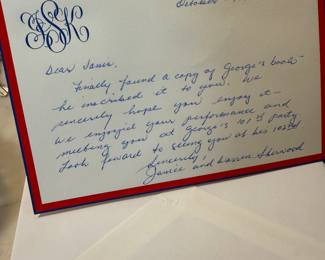 October
Dear James,
Finally found a copy of George's book -
he inscribed it to you. We
sincerely hope you enjoy it -
We enjoyed your performance and
meeting you at George's 101st party
Look foward to seeing you at his 102nd
Sincerely,
Janice and Warren Sherwood